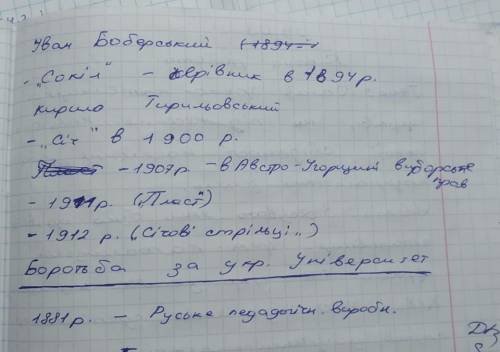 Іван Боберський (1894-)
- "Сокіл" - керівник в 1894р.
Кирило Тирильовський
- "Січ" в 1900 р.
Пласт - 1907р - в Австро-Угорщині виборське прав
- 1911р. ("Пласт")
- 1912 р. ("Січові стрільці")
Боротьба за укр. Університет
1881р. - Руське педагогічн. виробн.